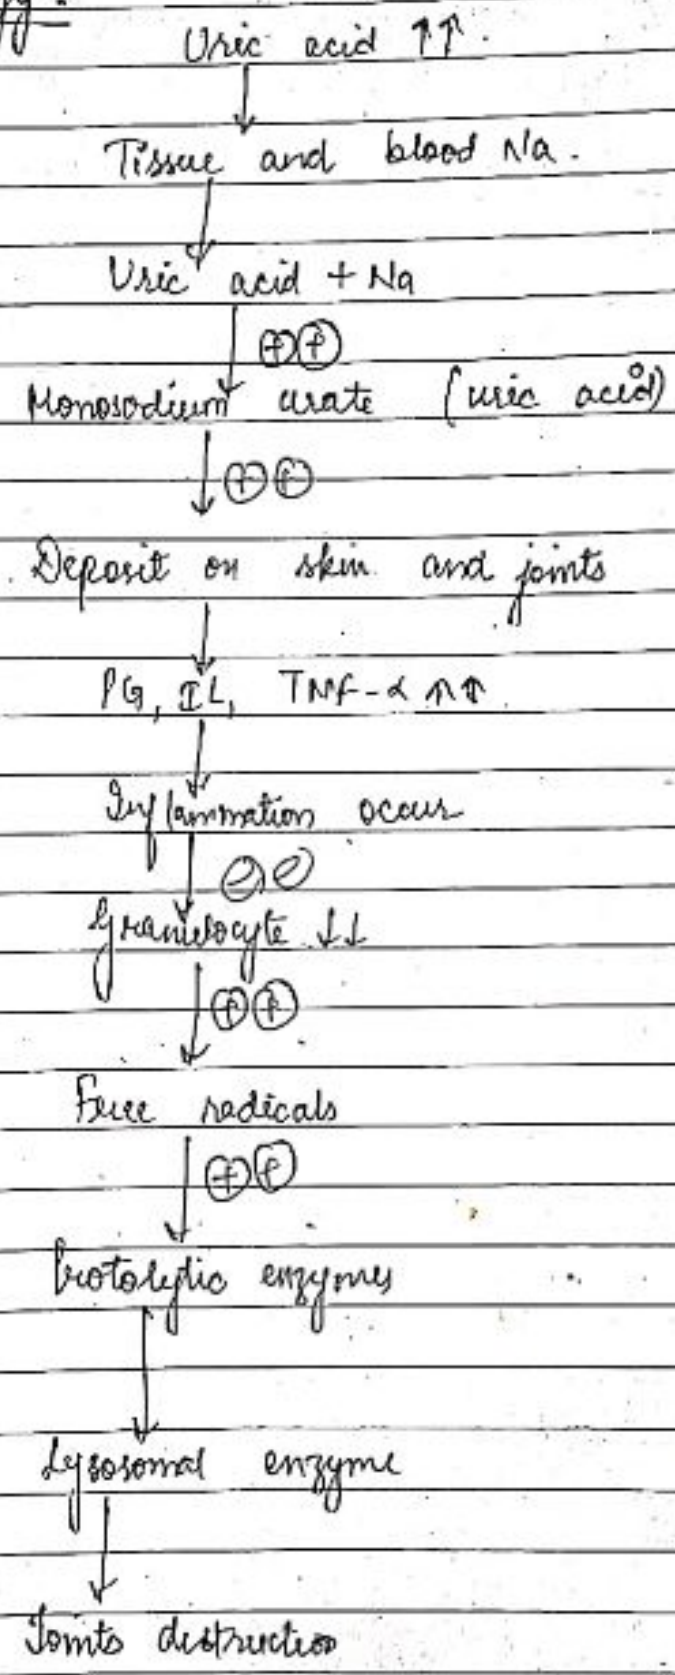 Uric acid ↑↑.
Tissue and blood Na.
Uric acid + Na
⊕⊕
Monosodium urate (uric acid)
⊕⊕
Deposit on skin and joints
PG, IL, TNF-α ↑↑
Inflammation occur
⊖⊖
Granulocyte ↓↓
⊕⊕
Free radicals
⊕⊕
Protolytic enzymes
Lysosomal enzyme
Joints distruction